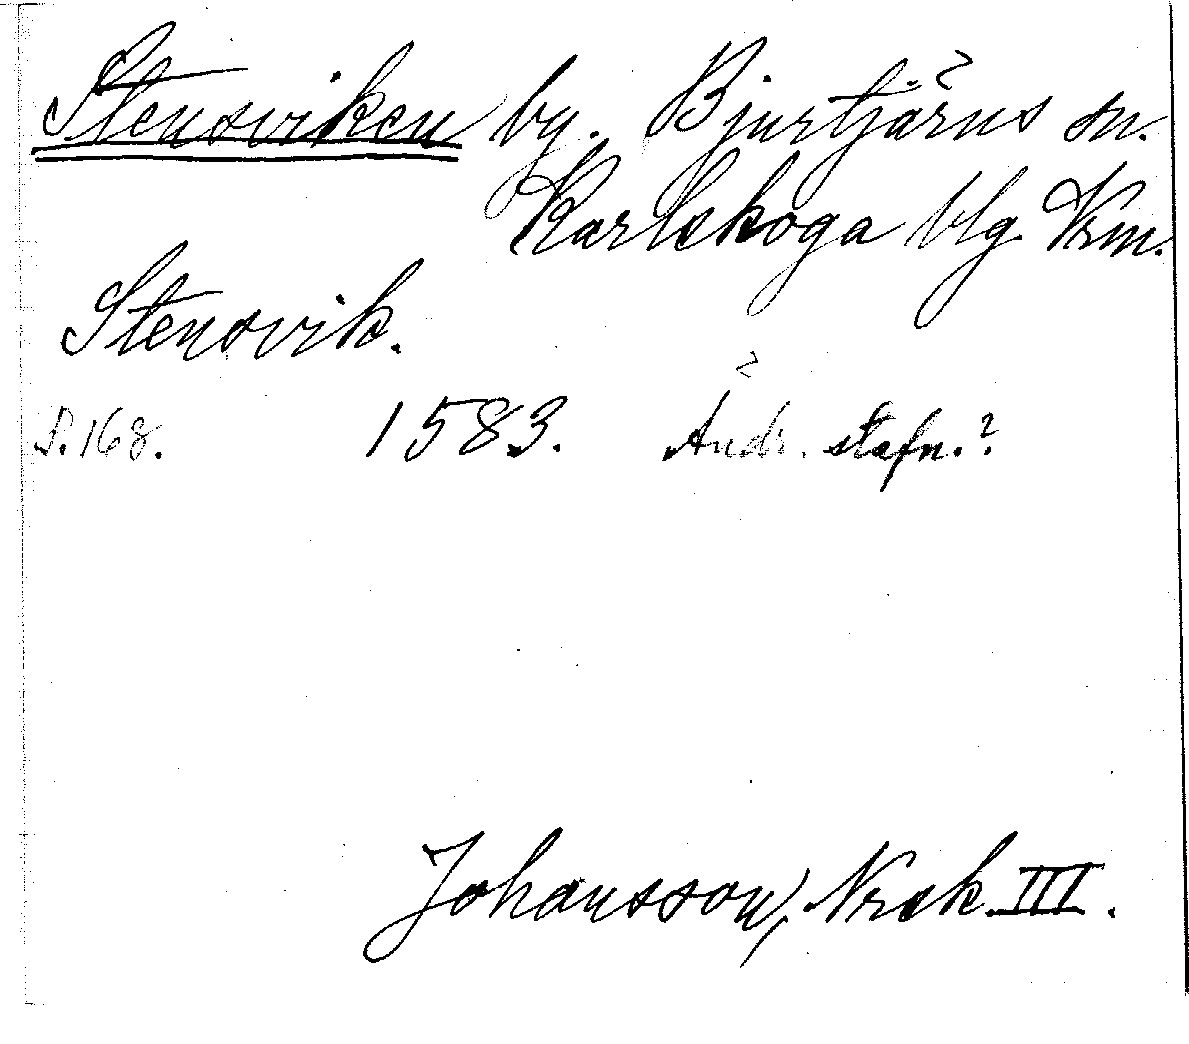 Stensviken by. Bjurtjärns sn.
Karlskoga blg Vrm.
Stensvik.
S. 168. 1583. Ändr. stafn.?
Johansson, Nrsk III.